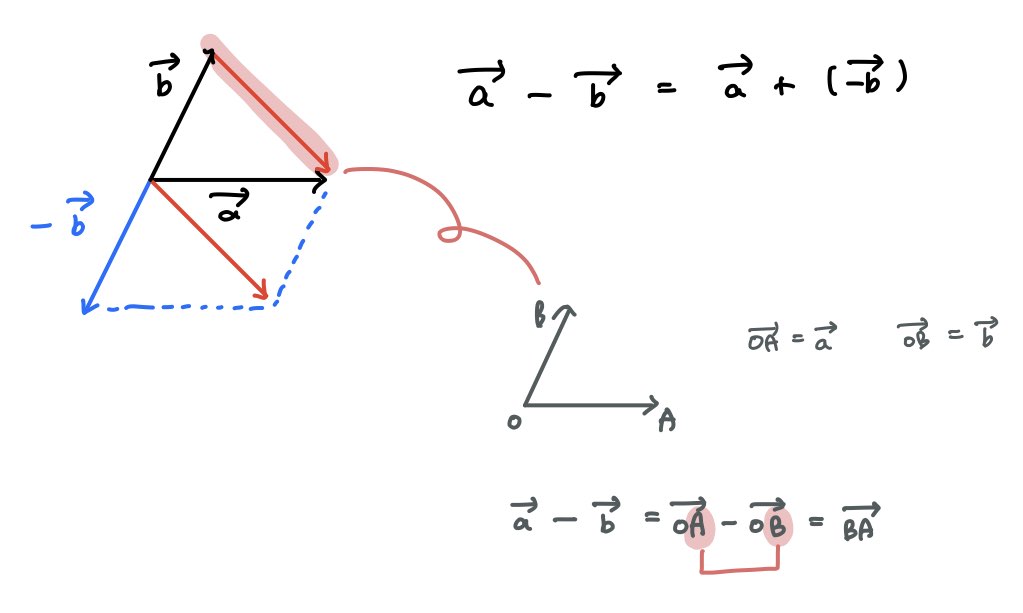 b⃗
a⃗ − b⃗ = a⃗ + (−b⃗)
a⃗
− b⃗
B
O
A
OA⃗ = a⃗
OB⃗ = b⃗
a⃗ − b⃗ = OA⃗ − OB⃗ = BA⃗